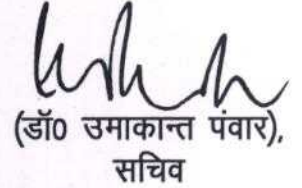 (डॉ0 उमाकान्त पंवार),
सचिव